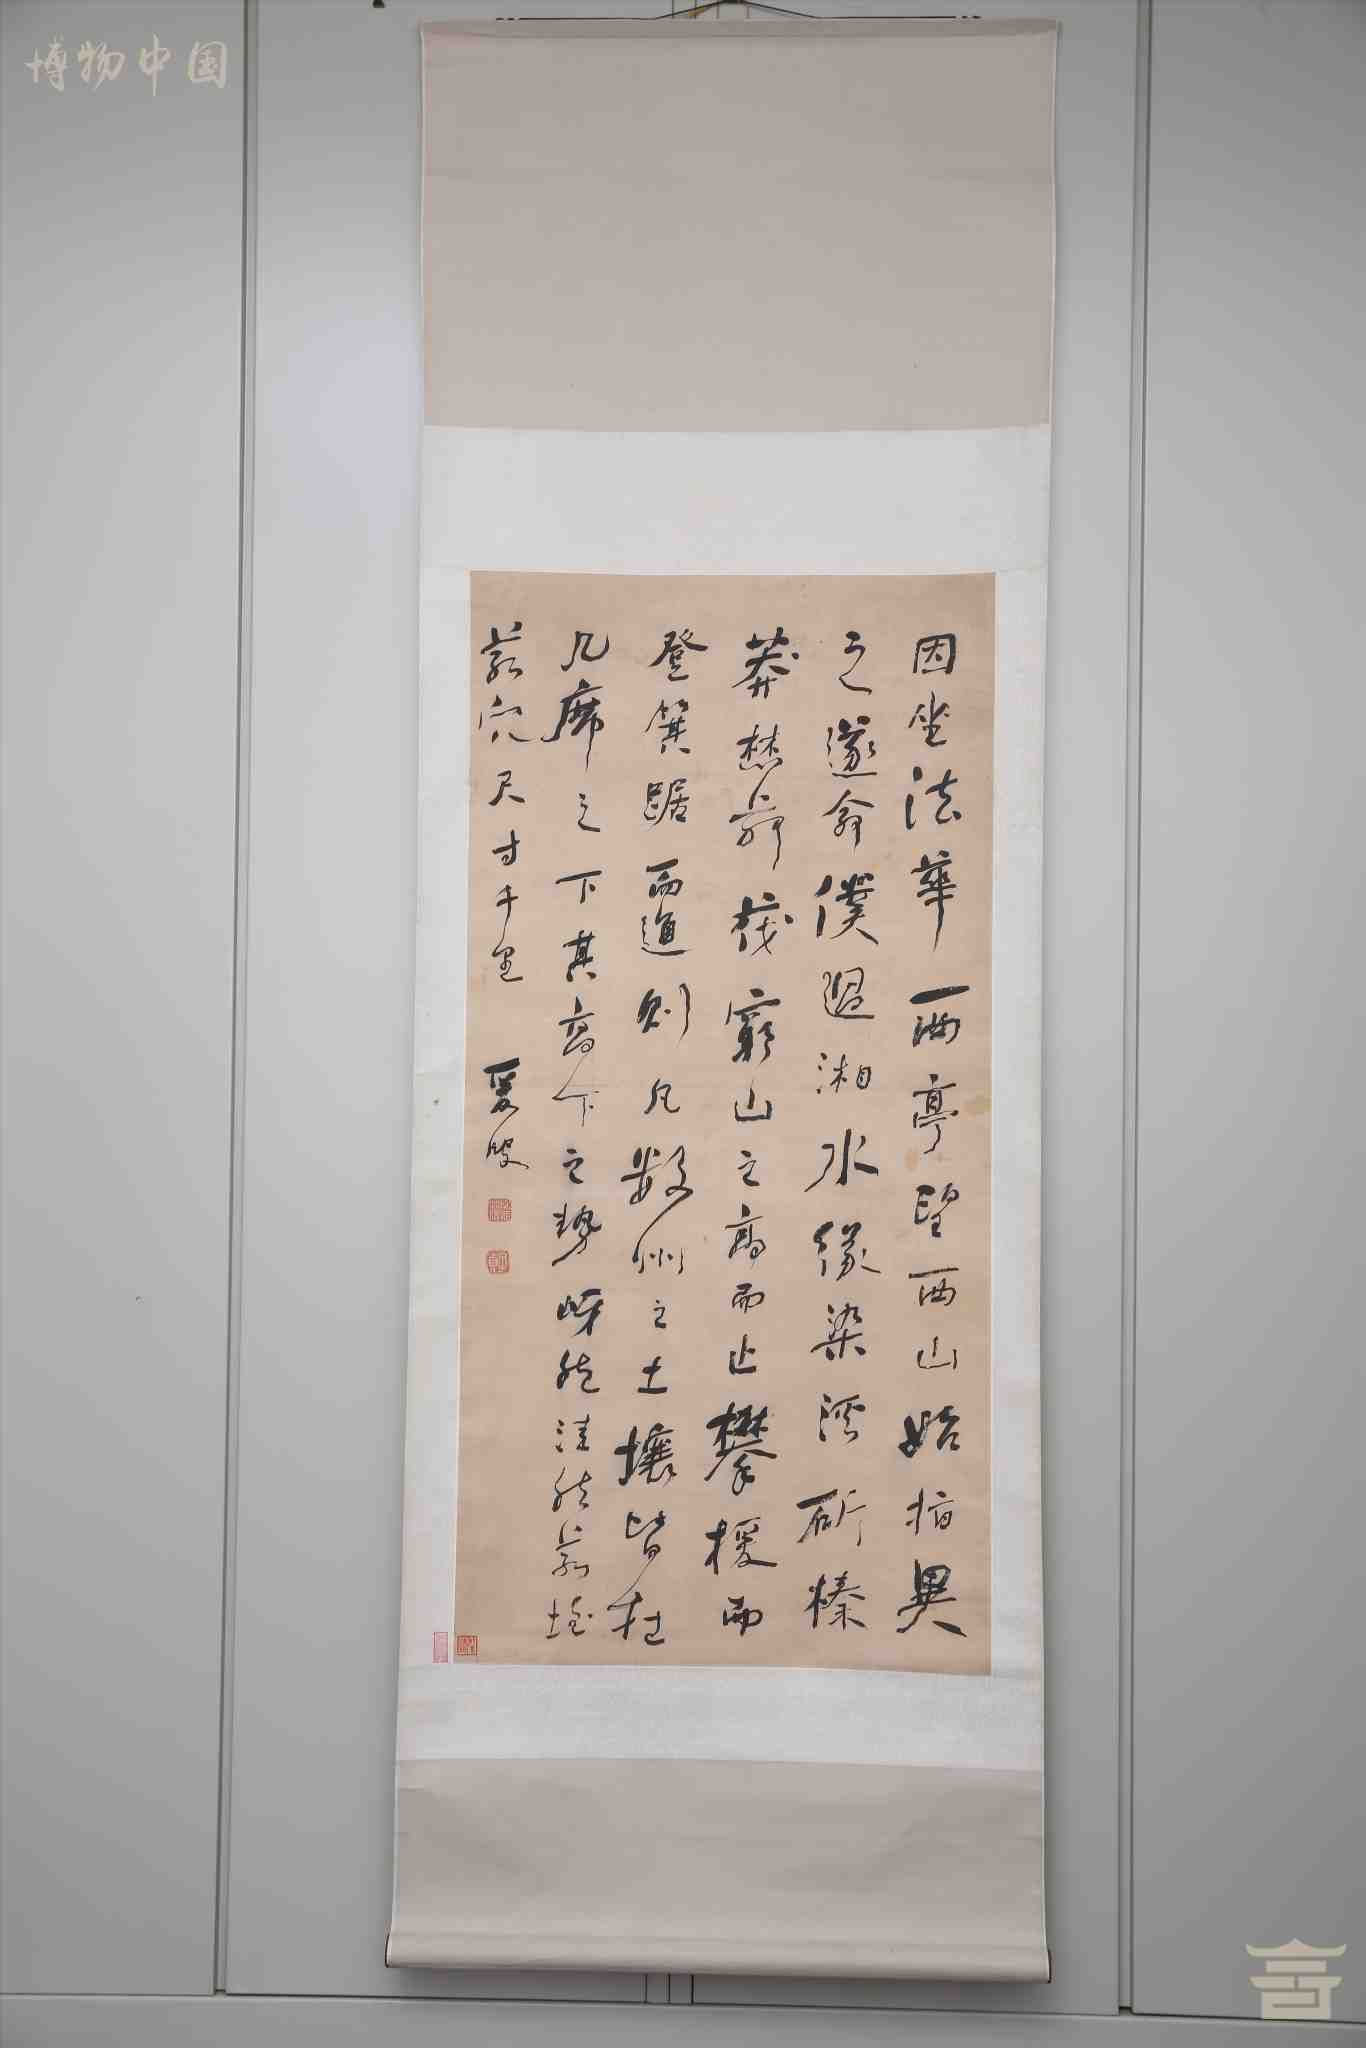 博物中国
因坐法華西亭望西山始指異
之遂命僕過湘水緣染溪斫榛
莽焚茅茷窮山之高而止攀援而
登箕踞而遨則凡數州之土壤皆在
几席之下其高下之勢岈然洼然若垤
若穴尺寸千里
蝯叟